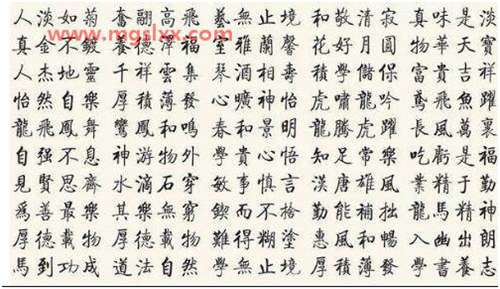 人淡如菊 奮翮高飛 藝無止境 和敬清寂 真味是淡
www.mgslxx.com
真金不鍍 養德澤福 室雅蘭馨 花好月圓 物華天寶
人杰地靈 千祥雲集 琴酒相壽 積學儲保 富貴吉祥
怡然自樂 厚積薄發 心曠神怡 虎嘯龍吟 鳶飛魚躍
龍飛鳳舞 鸞鳳和鳴 春和景明 龍騰虎躍 長風萬裏
自強不息 神游物外 學貴心悟 知足常樂 吃虧是福
見賢思齊 水滴石穿 敏事慎言 漢唐雄風 業精于勤
爲善最樂 其樂無窮 鍥而不捨 勤能補拙 龍馬精神
厚德載物 厚德載物 難得糊塗 惠風和暢 入幽出朗
馬到功成 道法自然 學無止境 厚積薄發 學書養志